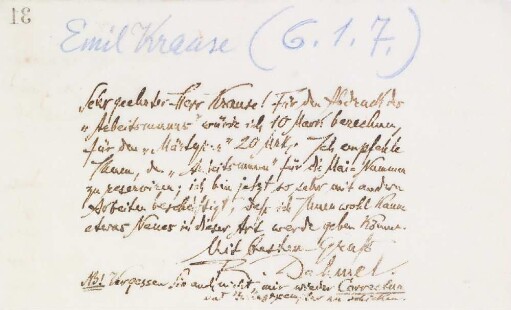 31
Emil Krause (6.1.7.)
Sehr geehrter Herr Krause! Für den Abdruck des
„Arbeitsmanns“ würde ich 10 Mark berechnen,
für den „Märtyrer“ 20 Mk. Ich empfehle
Ihnen, den „Arbeitsmann“ für die Mai-Nummer
zu reserviren; ich bin jetzt so sehr mit andern
Arbeiten beschäftigt, daß ich Ihnen wohl kaum
etwas Neues in dieser Art werde geben können.
Mit bestem Gruß
R. Dehmel.
NB! Vergessen Sie auch nicht, mir wieder Correctur
zu schicken.